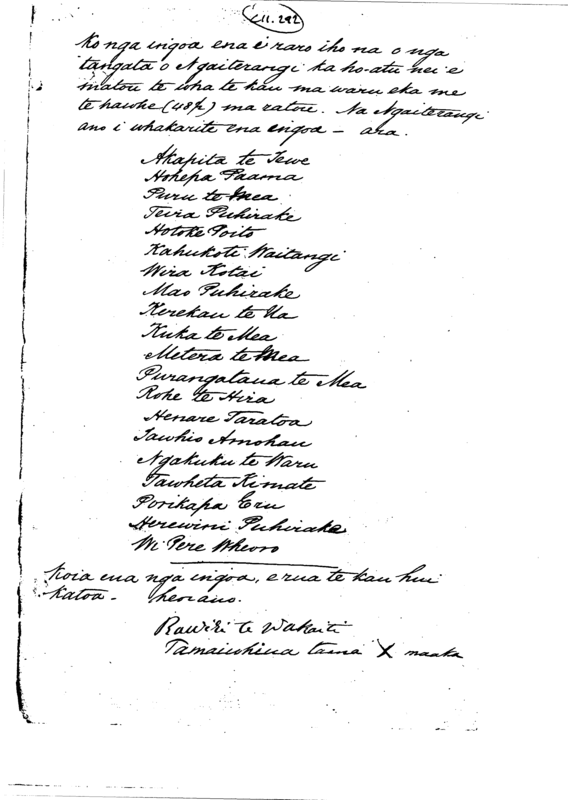 C11.292
Ko nga ingoa ena é raro iho na o nga
tangata o Ngaiterangi ka ho-atu nei e
matou te wha te kau ma waru eka me
te hawhe (48½) ma ratou. Na Ngaiterangi
ano i whakarite ena ingoa – ara.
Akapita te Tewe
Hohepa Paama
Puru te Mea
Teira Puhirake
Hotoke Poito
Kahukoti Waitangi
Wira Kotai
Mao Puhirake
Kerekau te Ua
Kuka te Mea
Metera te Mea
Purangataua te Mea
Rohe te Hira
Henare Taratoa
Tawhio Amohau
Ngakuku te Waru
Tawheta Kimate
Porikapa Eru
Herewini Puhirake
Wi Pere Wheoro
Koia ena nga ingoa, e rua te kau hui
katoa – heoi ano.
Rawiri te Wakaiti
Tamaiwhiua tana X maaka